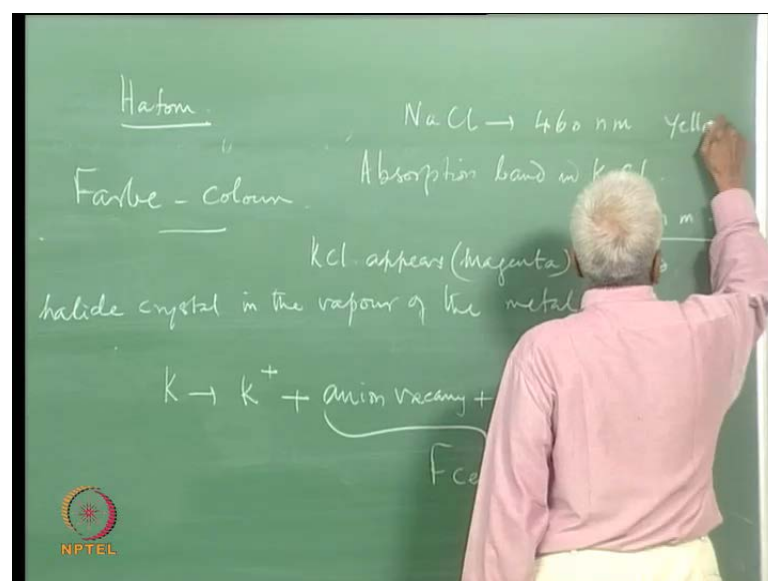 H atom.
NaCl → 460 nm Yello
Farbe - colour.
Absorption band in KCl.
m
KCl appears (Magenta)
halide crystal in the vapour of the metal
K → K⁺ + anion vacancy +
F ce
NPTEL